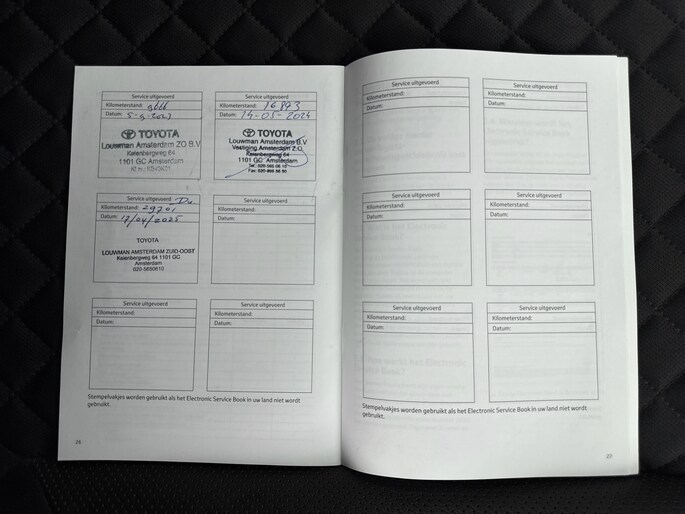 Service uitgevoerd
Kilometerstand:
Datum: 5-9-2023
TOYOTA
Louwman Amsterdam ZO B.V
Kelenbergweg 64
1101 GC Amsterdam
Service uitgevoerd
Kilometerstand: 16893
Datum: 14-05-2024
TOYOTA
Louwman Amsterdam B.V
Vestiging Amsterdam Z.O.
Kelenbergweg 64
1101 GC Amsterdam
Tel. 020-565 06 10
Service uitgevoerd
Kilometerstand: 29701
Datum: 17/04/2025
TOYOTA
LOUWMAN AMSTERDAM ZUID-OOST
Kelenbergweg 64 1101 GC
Amsterdam
020-5650610
Service uitgevoerd
Kilometerstand:
Datum:
Service uitgevoerd
Kilometerstand:
Datum:
Service uitgevoerd
Kilometerstand:
Datum:
Stempelvakjes worden gebruikt als het Electronic Service Book in uw land niet wordt
gebruikt.
26
Service uitgevoerd
Kilometerstand:
Datum:
Service uitgevoerd
Kilometerstand:
Datum:
Service uitgevoerd
Kilometerstand:
Datum:
Service uitgevoerd
Kilometerstand:
Datum:
Service uitgevoerd
Kilometerstand:
Datum:
Service uitgevoerd
Kilometerstand:
Datum:
Stempelvakjes worden gebruikt als het Electronic Service Book in uw land niet wordt
gebruikt.
27